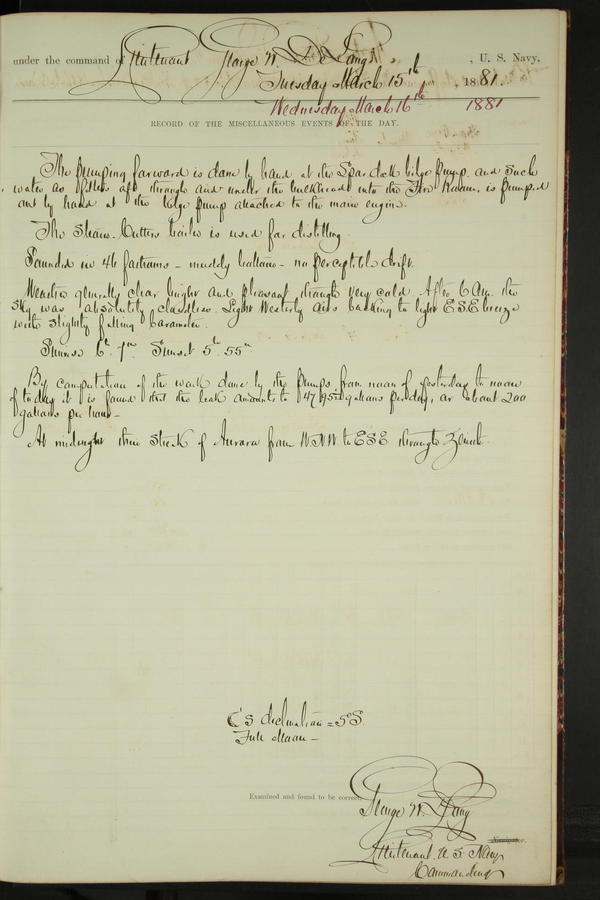 under the command of Lieutenant George W. De Long, U. S. Navy,
Tuesday March 15th, 1881.
Wednesday March 16th 1881
RECORD OF THE MISCELLANEOUS EVENTS OF THE DAY.
The pumping forward is done by hand at the Spar deck bilge pump and such
water as filters aft through and under the bulkhead into the Fire Room, is pumped
out by hand at the bilge pump attached to the main engine.
The Steam-Cutters boiler is used for distilling.
Sounded in 46 fathoms - muddy bottom - no perceptible drift.
Weather generally clear bright and pleasant though very cold. After 6 A.m. the
sky was absolutely cloudless. Light Westerly airs backing to light E S E breeze
with slightly falling barometer.
Sunrise 6h. 7m Sunset 5h. 55m
By computation of the work done by the pumps from noon of yesterday to noon
of today it is found that the leak amounts to gallons per day, or about 200
gallons per hour -
At midnight thin streak of Aurora from W.N.W to E S E through Zenith.
C's declination = 5° S
Full Moon -
Examined and found to be correct.
George W. De Long
Navigator.
Lieutenant U. S. Navy
Commanding